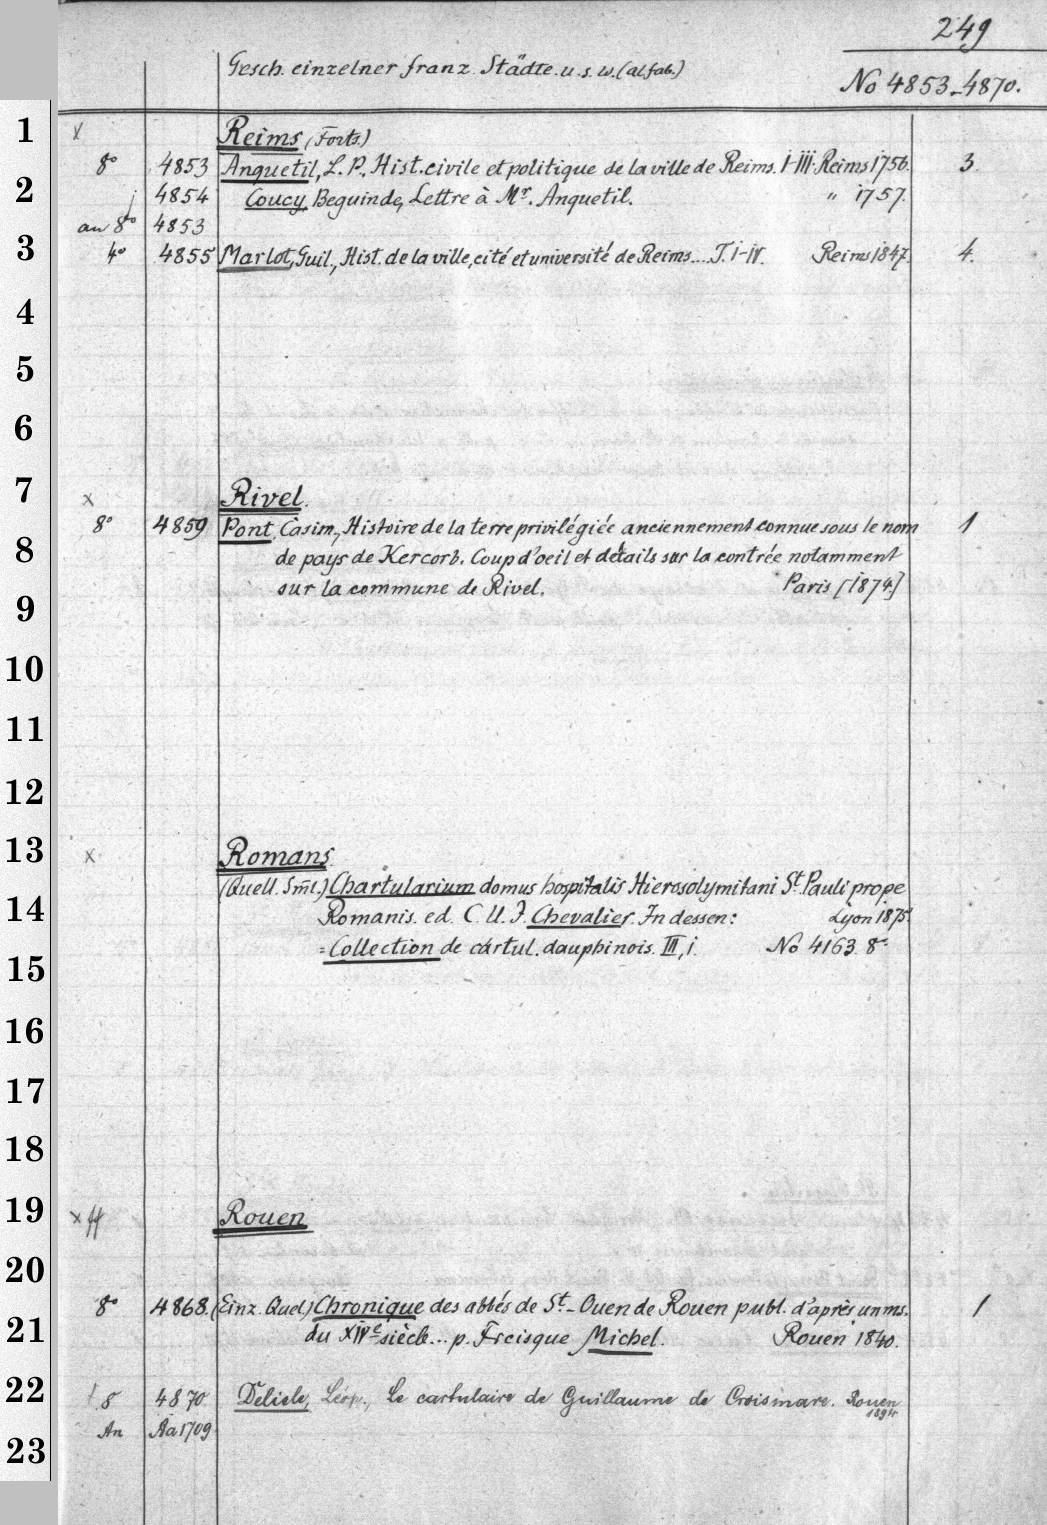 249
Gesch. einzelner franz. Städte u. s. w. (alfab.)
No 4853-4870.
1 x Reims (Forts.)
8° 4853 Anquetil, L. P., Hist. civile et politique de la ville de Reims. I-III. Reims 1756. 3.
2 4854 Coucy, Beguinde, Lettre à Mr. Anquetil. " 1757.
an 8° 4853
3 4° 4855 Marlot, Guil., Hist. de la ville, cité et université de Reims... T. I-IV. Reims 1847. 4.
4
5
6
7 x Rivel.
8° 4859 Pont, Casim., Histoire de la terre privilégiée anciennement connue sous le nom 1
8 de pays de Kercorb. Coup d'oeil et détails sur la contrée notamment
9 sur la commune de Rivel. Paris [1874]
10
11
12
13 x Romans
(Quell. Sml.) Chartularium domus hospitalis Hierosolymitani St. Pauli prope
14 Romanis. ed. C. U. J. Chevalier. In dessen: Lyon 1875.
15 = Collection de cartul. dauphinois. III, i. No 4163. 8°
16
17
18
19 x ff Rouen
20
8° 4868. (Einz. Quel.) Chronique des abbés de St-Ouen de Rouen publ. d'après un ms. 1
21 du XIVe siècle... p. Frcisque Michel. Rouen 1840.
22 8 4870 Delisle, Léop., Le cartulaire de Guillaume de Croismare. Rouen
1894
An Aa 1709
23